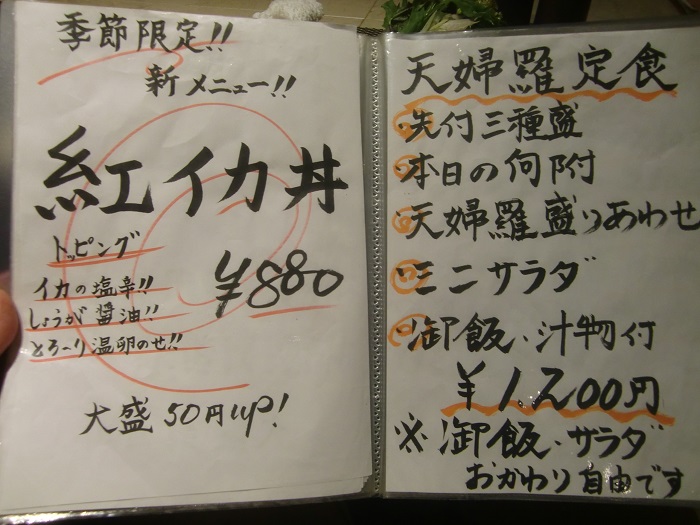 季節限定!!
新メニュー!!
紅イカ丼
トッピング
¥880
イカの塩辛!!
しょうが醤油!!
とろ~り温卵のせ!!
大盛50円up!
天婦羅定食
・先付三種盛
・本日の向附
・天婦羅盛りあわせ
・ミニサラダ
・御飯、汁物付
¥1.200円
※御飯、サラダ
おかわり自由です